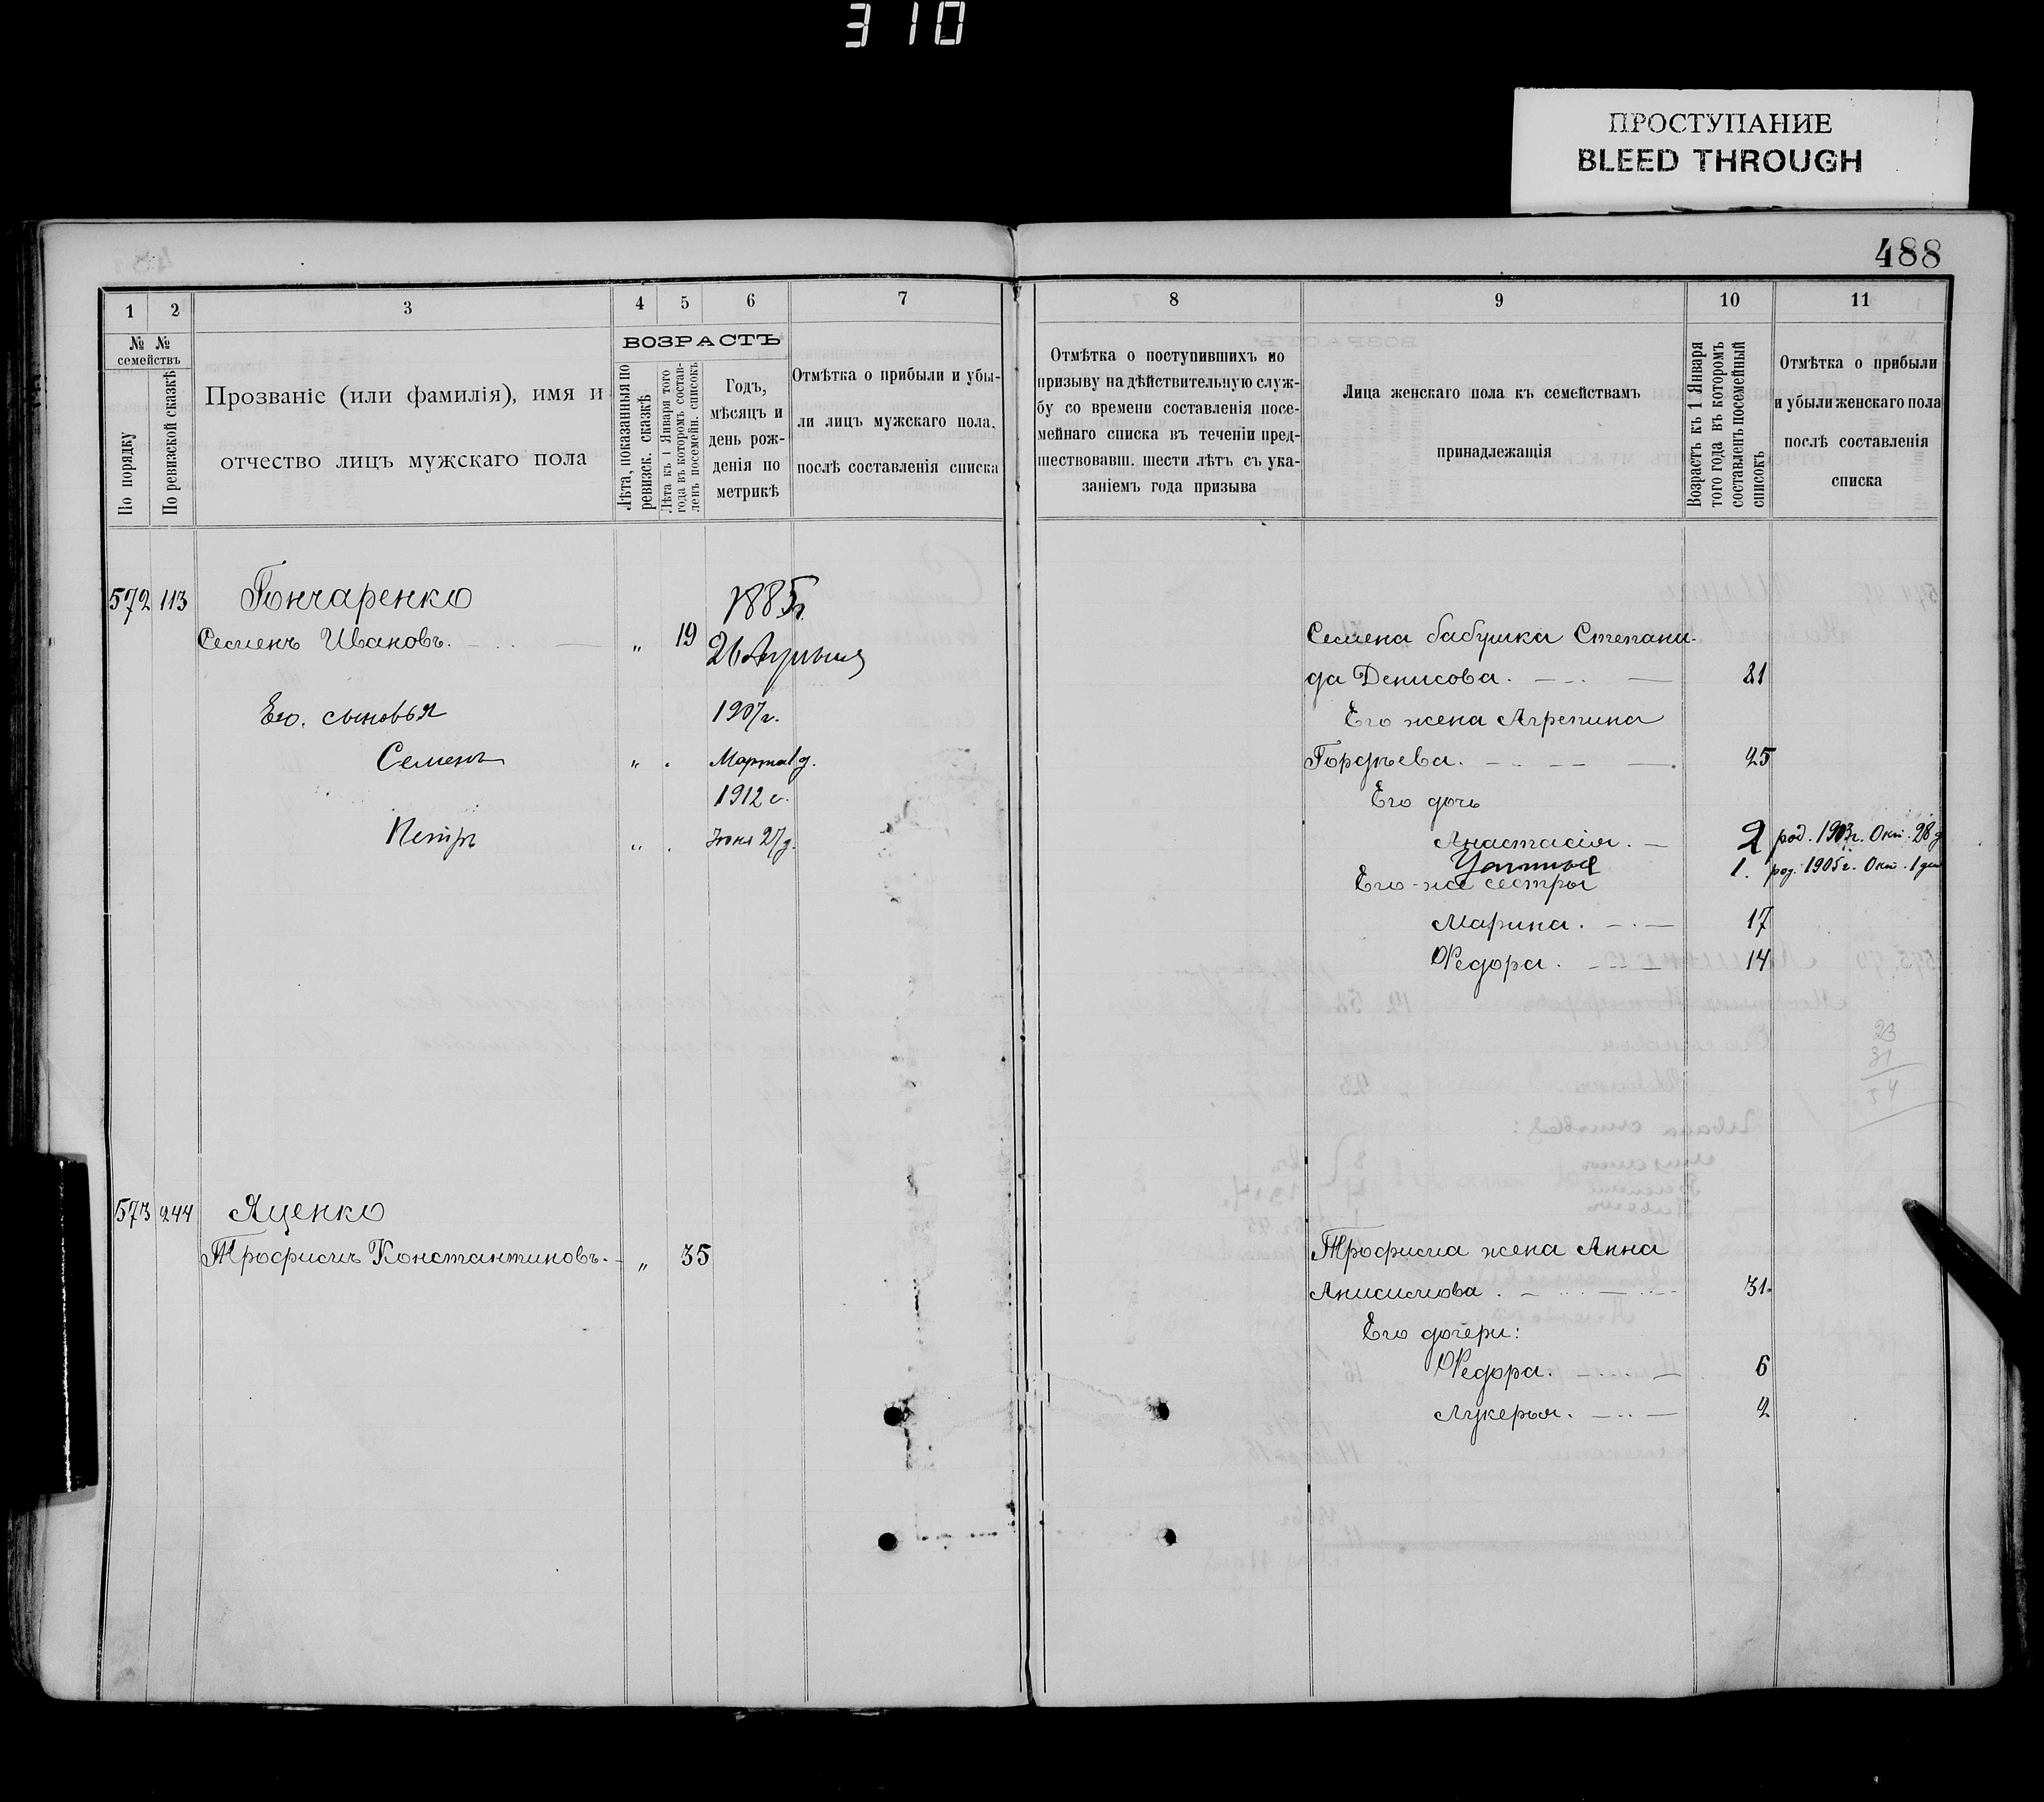 310
ПРОСТУПАНИЕ
BLEED THROUGH
488
1 2 3 4 5 6 7 8 9 10 11
№ № семействъ
По порядку
По ревизской сказкѣ
Прозваніе (или фамилія), имя и
отчество лицъ мужскаго пола
ВОЗРАСТЪ
Лѣта, показанныя по
ревизск. сказкѣ
Лѣта къ 1 Января того
года въ которомъ состав-
ленъ посемейн. списокъ
Годъ,
мѣсяцъ и
день рож-
денія по
метрикѣ
Отмѣтка о прибыли и убы-
ли лицъ мужскаго пола,
послѣ составленія списка
Отмѣтка о поступившихъ по
призыву на дѣйствительную служ-
бу со времени составленія посе-
мейнаго списка въ теченіи пред-
шествовавш. шести лѣтъ съ ука-
заніемъ года призыва
Лица женскаго пола къ семействамъ
принадлежащія
Возрастъ къ 1 Января
того года въ которомъ
составленъ посемейный
списокъ
Отмѣтка о прибыли
и убыли женскаго пола
послѣ составленія
списка
572 113 Гончаренко 1885г.
Семенъ Ивановъ. „ 19 26
Его сыновья 1907г.
Семенъ „ . Марта 1 д.
1912 г.
Петръ „ . Іюня 27 д.
Семена бабушка Степани-
да Денисова. 81
Его жена Агрепина
Гордѣева. 25
Его дочь
Анастасія. 2 род. 1903г. Окт. 28 д
1. род. 1905 г. Окт. 1 дня
Его-же сестры
Марина. 17
Ѳедора. 14
23
31
54
573 244 Яценко
Трофимъ Константиновъ. „ 35
Трофима жена Анна
Анисимова. 31.
Его дочери:
Ѳедора. 6
Лукерья. 2